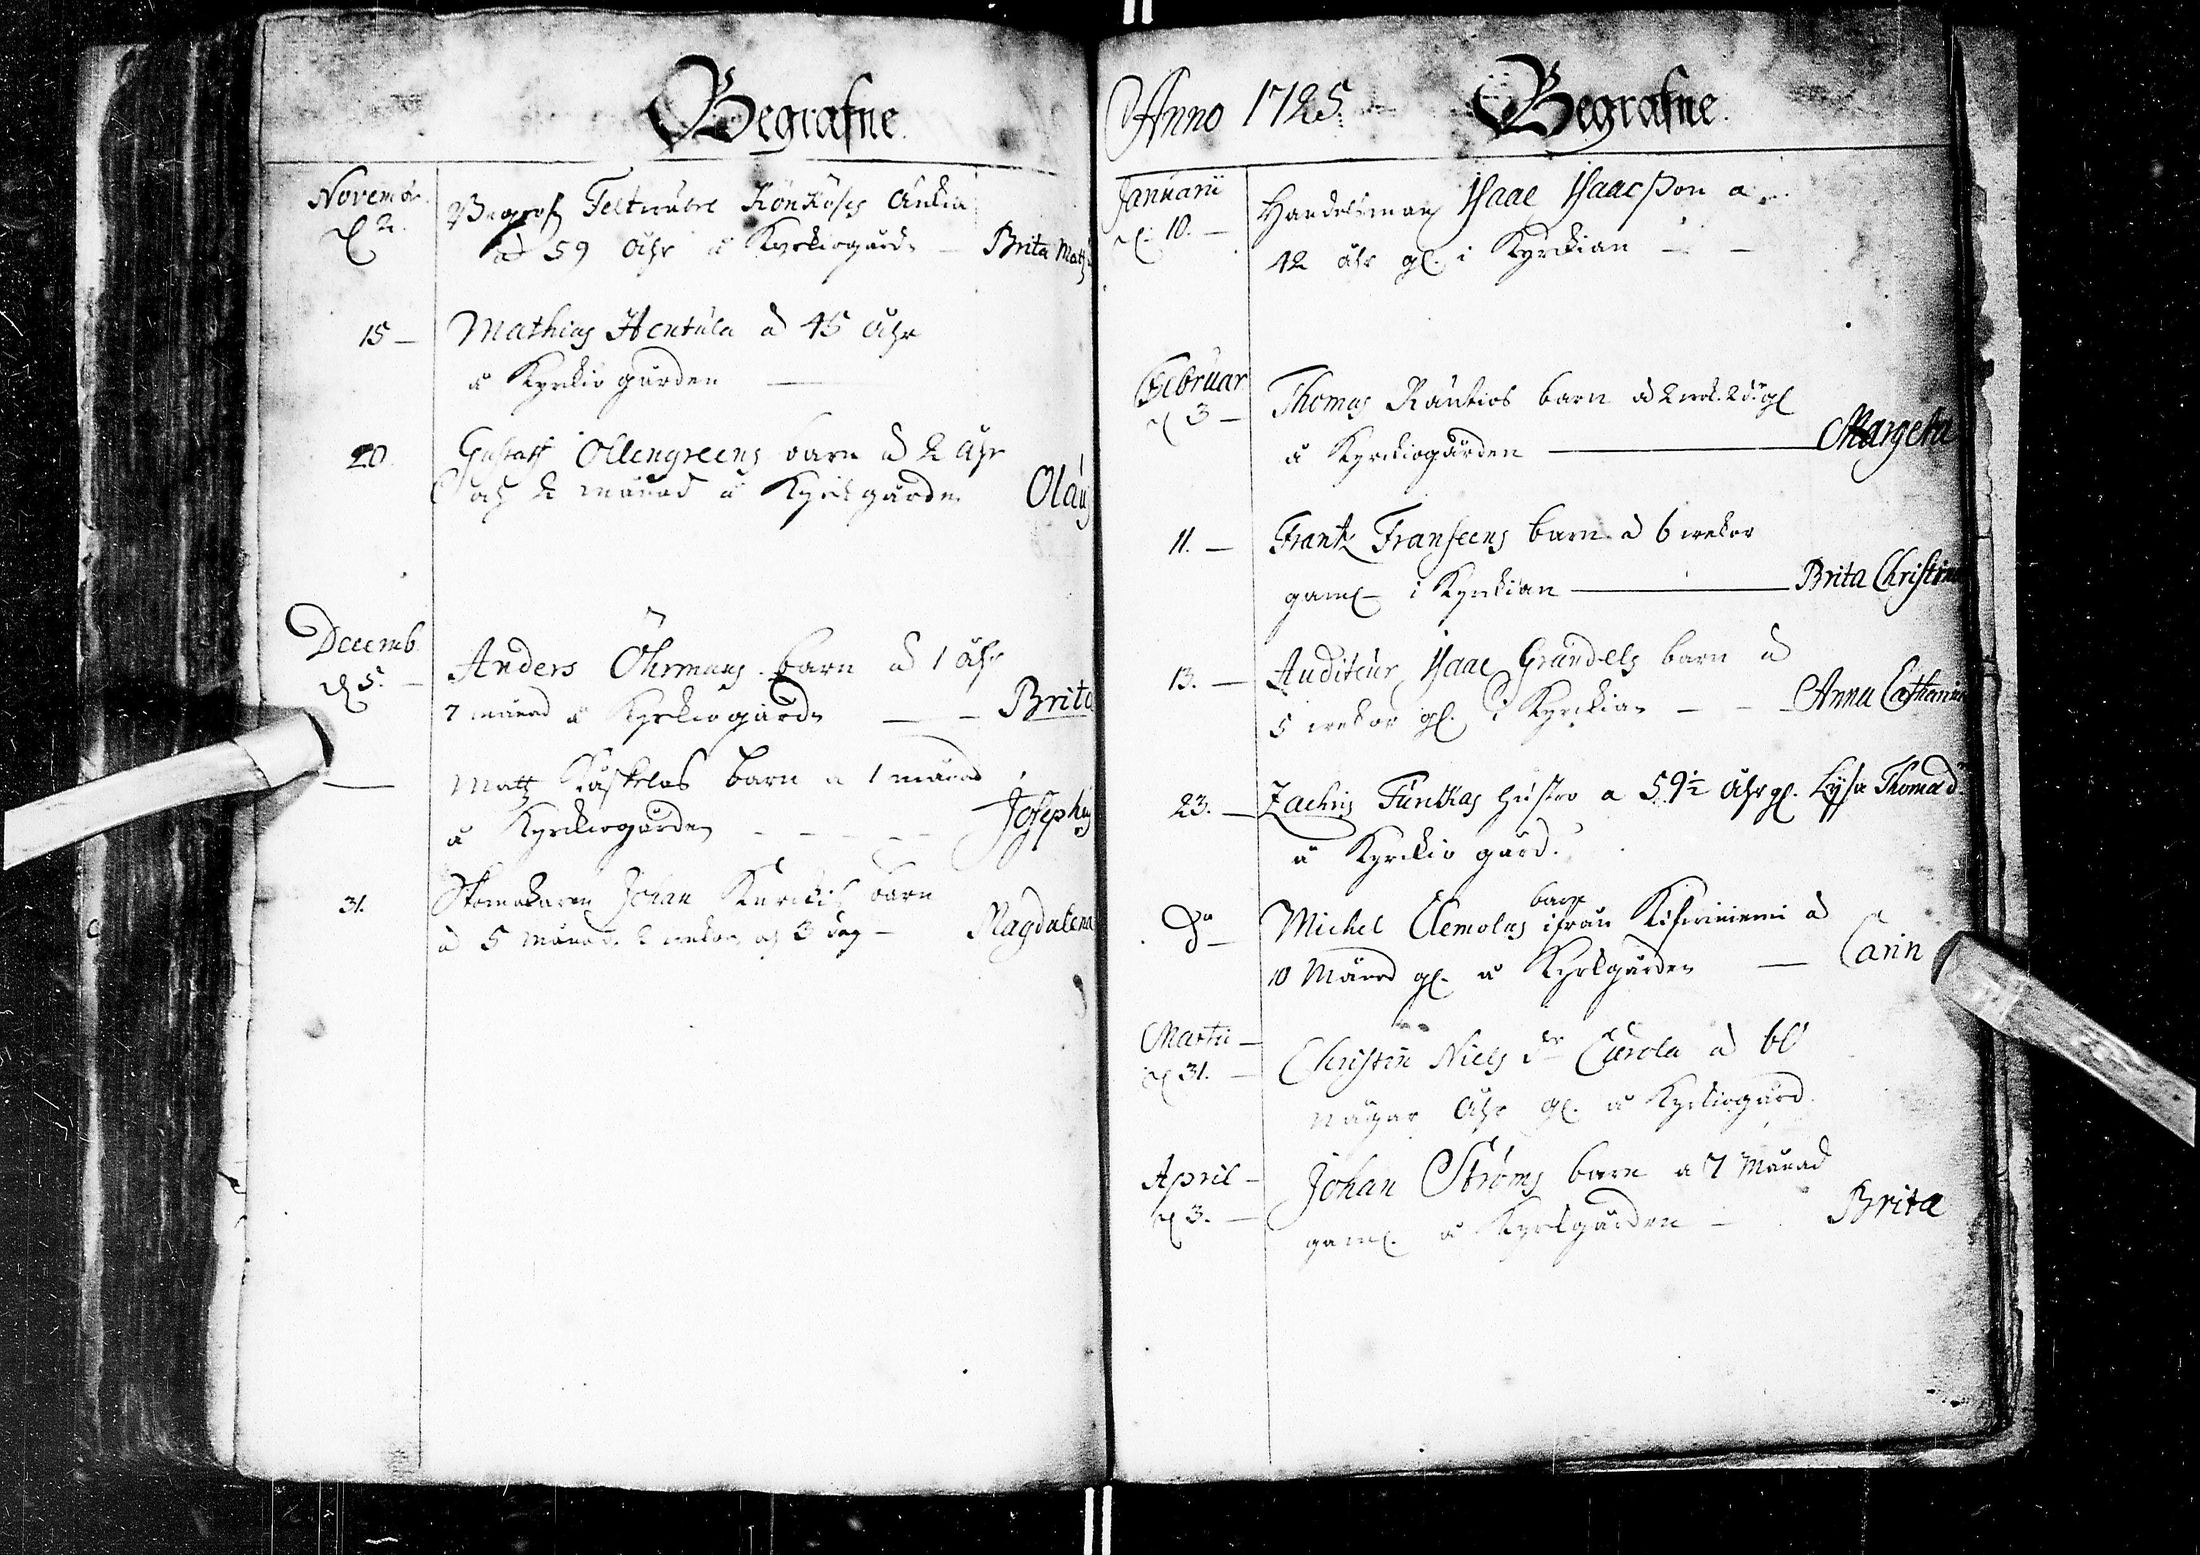 Begrafne.
Novembr.
d 2. Begrofs Feltwäbel Könkösss Änkia
ad 59 åhr å Kyrkiogårdn — Brita Matz
15 — Mathias Hentula ad 45 åhr
å Kyrkiogården —
20. Gustaff Ollengreens barn ad 2 åhr
och 2 månad å Kyrkgårdn Olaus
Decemb.
d 5. — Anders Öhrmans barn ad 1 åhr
7 månad å Kyrkiogårdn — — Brita
— Matz barn a 1 månad
å Kyrckiogården — — — — Josephus
31. Skomakaren Johan Kurckis barn
ad 5 månad. 2 wekor och 3 dag — Magdalena
Anno 1725 Begrafne.
Januarii
d. 10. — Handelsman Isaac Isaacsson a
42 åhr gl. i Kyrckian — —
Februar
d 3 — Thomas Rautios barn ad 2 wek. 2 d. gl
å Kyrckiogården — Margeta
11. — Frantz Franseens barn ad 6 wekor
gaml i Kyrckian — Brita Christina
13. — Auditeur Isaac Grundels barn ad
5 wekor gl. i Kyrckian — — Anna Catharina
23. — Zachris Funkas hustro a 59½ åhr gl. Lysa Thomad.
å Kyrckiogård.
Do — Michel Clemolas barn ifrån Kisiniemi ad
10 Månad gl. å Kyrkgården — Carin
Martii —
d 31. — Christin Niels dr Curola ad 60
någar åhr gl. å Kyrkiogård.
April —
d 3. — Johan Ströms barn a 7 Månad
gaml. å Kyrkgården — Brita